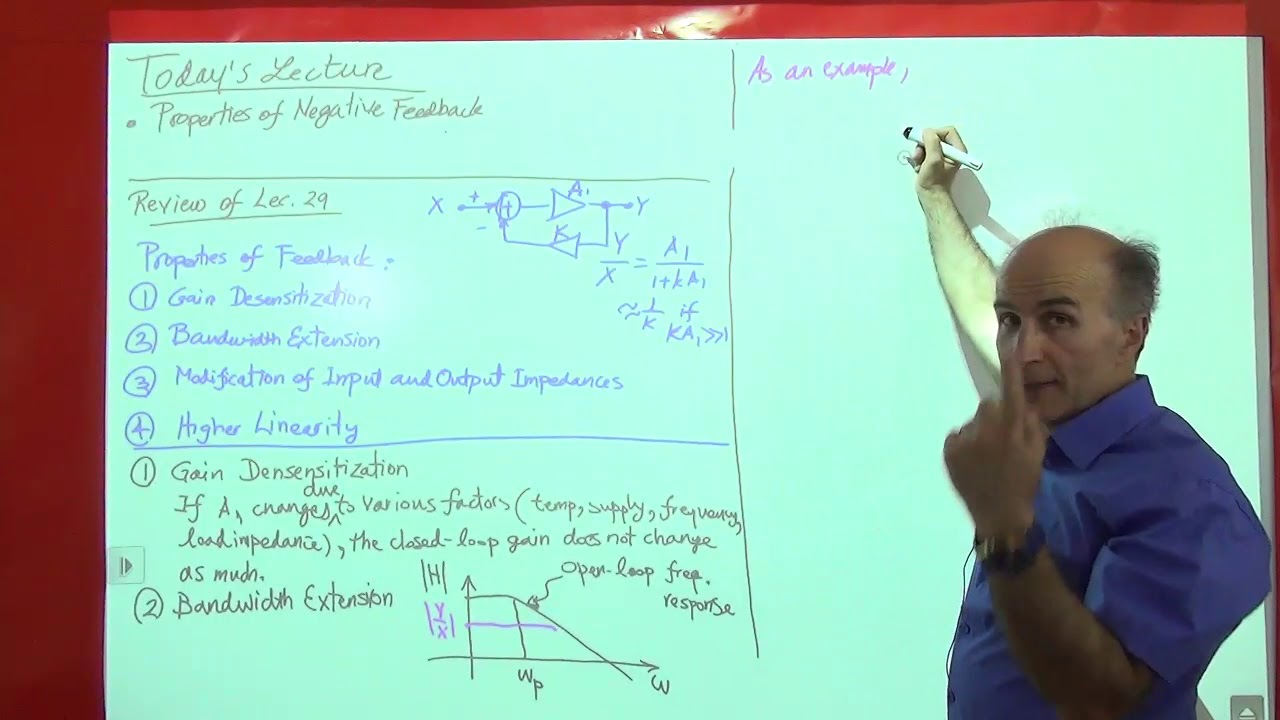 Today's Lecture
• Properties of Negative Feedback
Review of Lec. 29
X + - + A1 Y
K
Y/X = A1/(1+KA1)
≈ 1/K if
KA1 >> 1
Properties of Feedback:
① Gain Desensitization
② Bandwidth Extension
③ Modification of Input and Output Impedances
④ Higher Linearity
① Gain Densensitization
If A1 changes due to various factors (temp, supply, frequency,
load impedance), the closed-loop gain does not change
as much.
② Bandwidth Extension
|H|
|Y/X|
Open-loop freq.
response
ωp
ω
As an example,